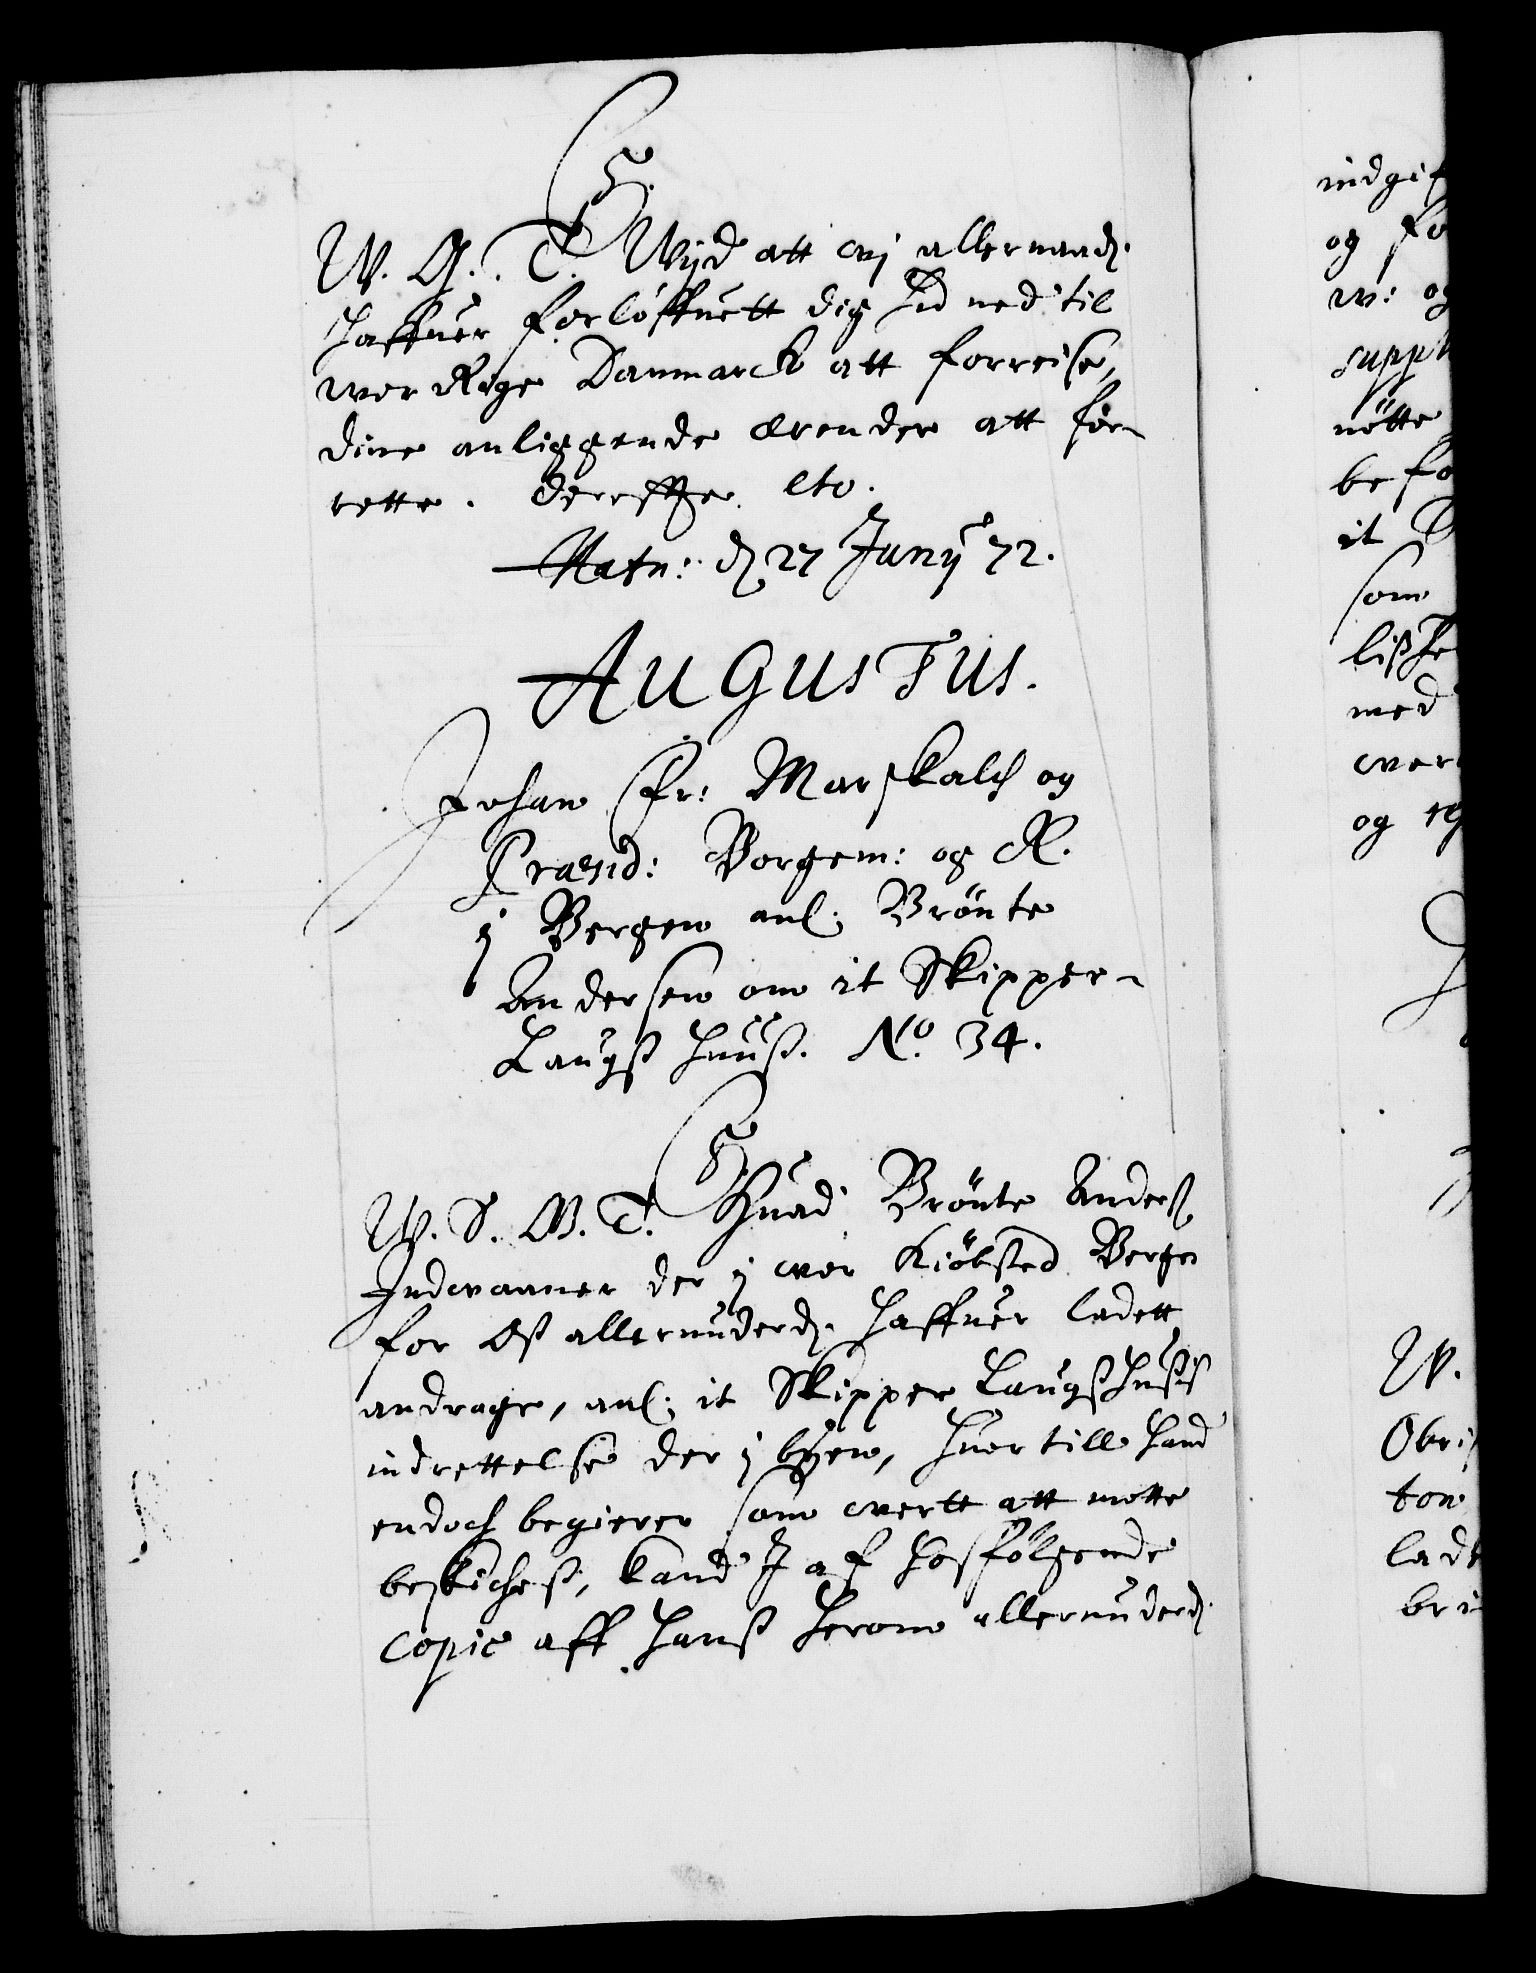 C5.
W. G. T. Wijd att wj allernaad.
haffuer forlöffuett dig hid ned til
wor Rige Danmarck att forreise,
dine anliggende ærender att for-
rette. Dereffter etc.
Hafn: d. 27 Junij 72.
AUGUSTUS.
Johan Fr: Marskalch og
Præsid: Borgem: og R.
j Bergen anl: Brönte
Andersen om it Skipper-
Laugß huuß. No. 34.
C5.
W. S. G. T. Huad Brönte Anderß.
Indvaaner der j wor Kiöbsted Bergen
for Oß allerunderd. haffuer ladett
andrage, anl: it Skipper Laugßhusis
indrettelse der j byen, huor till hand
endoch begierer som wertt att motte
beskicheß, kand I af hosfölgende
copie aff hanß herom allerunderd.
indgif
og fo
w: og
suppl
nötte
be fo
it
som
lißhe
med
wer
og
W.
Obri
ton
lade
bri